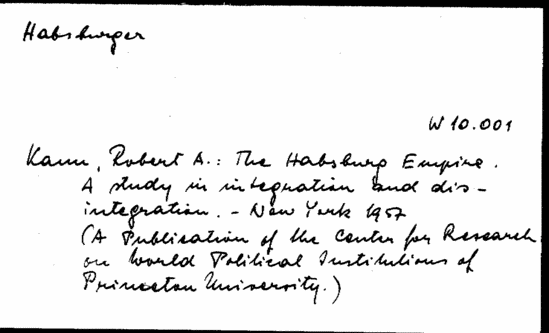 Habsburger
W 10.001
Kann, Robert A.: The Habsburg Empire.
A study in integration and dis-
integration. - New York 1957
(A Publication of the Center for Research
on World Political Institutions of
Princeton University.)